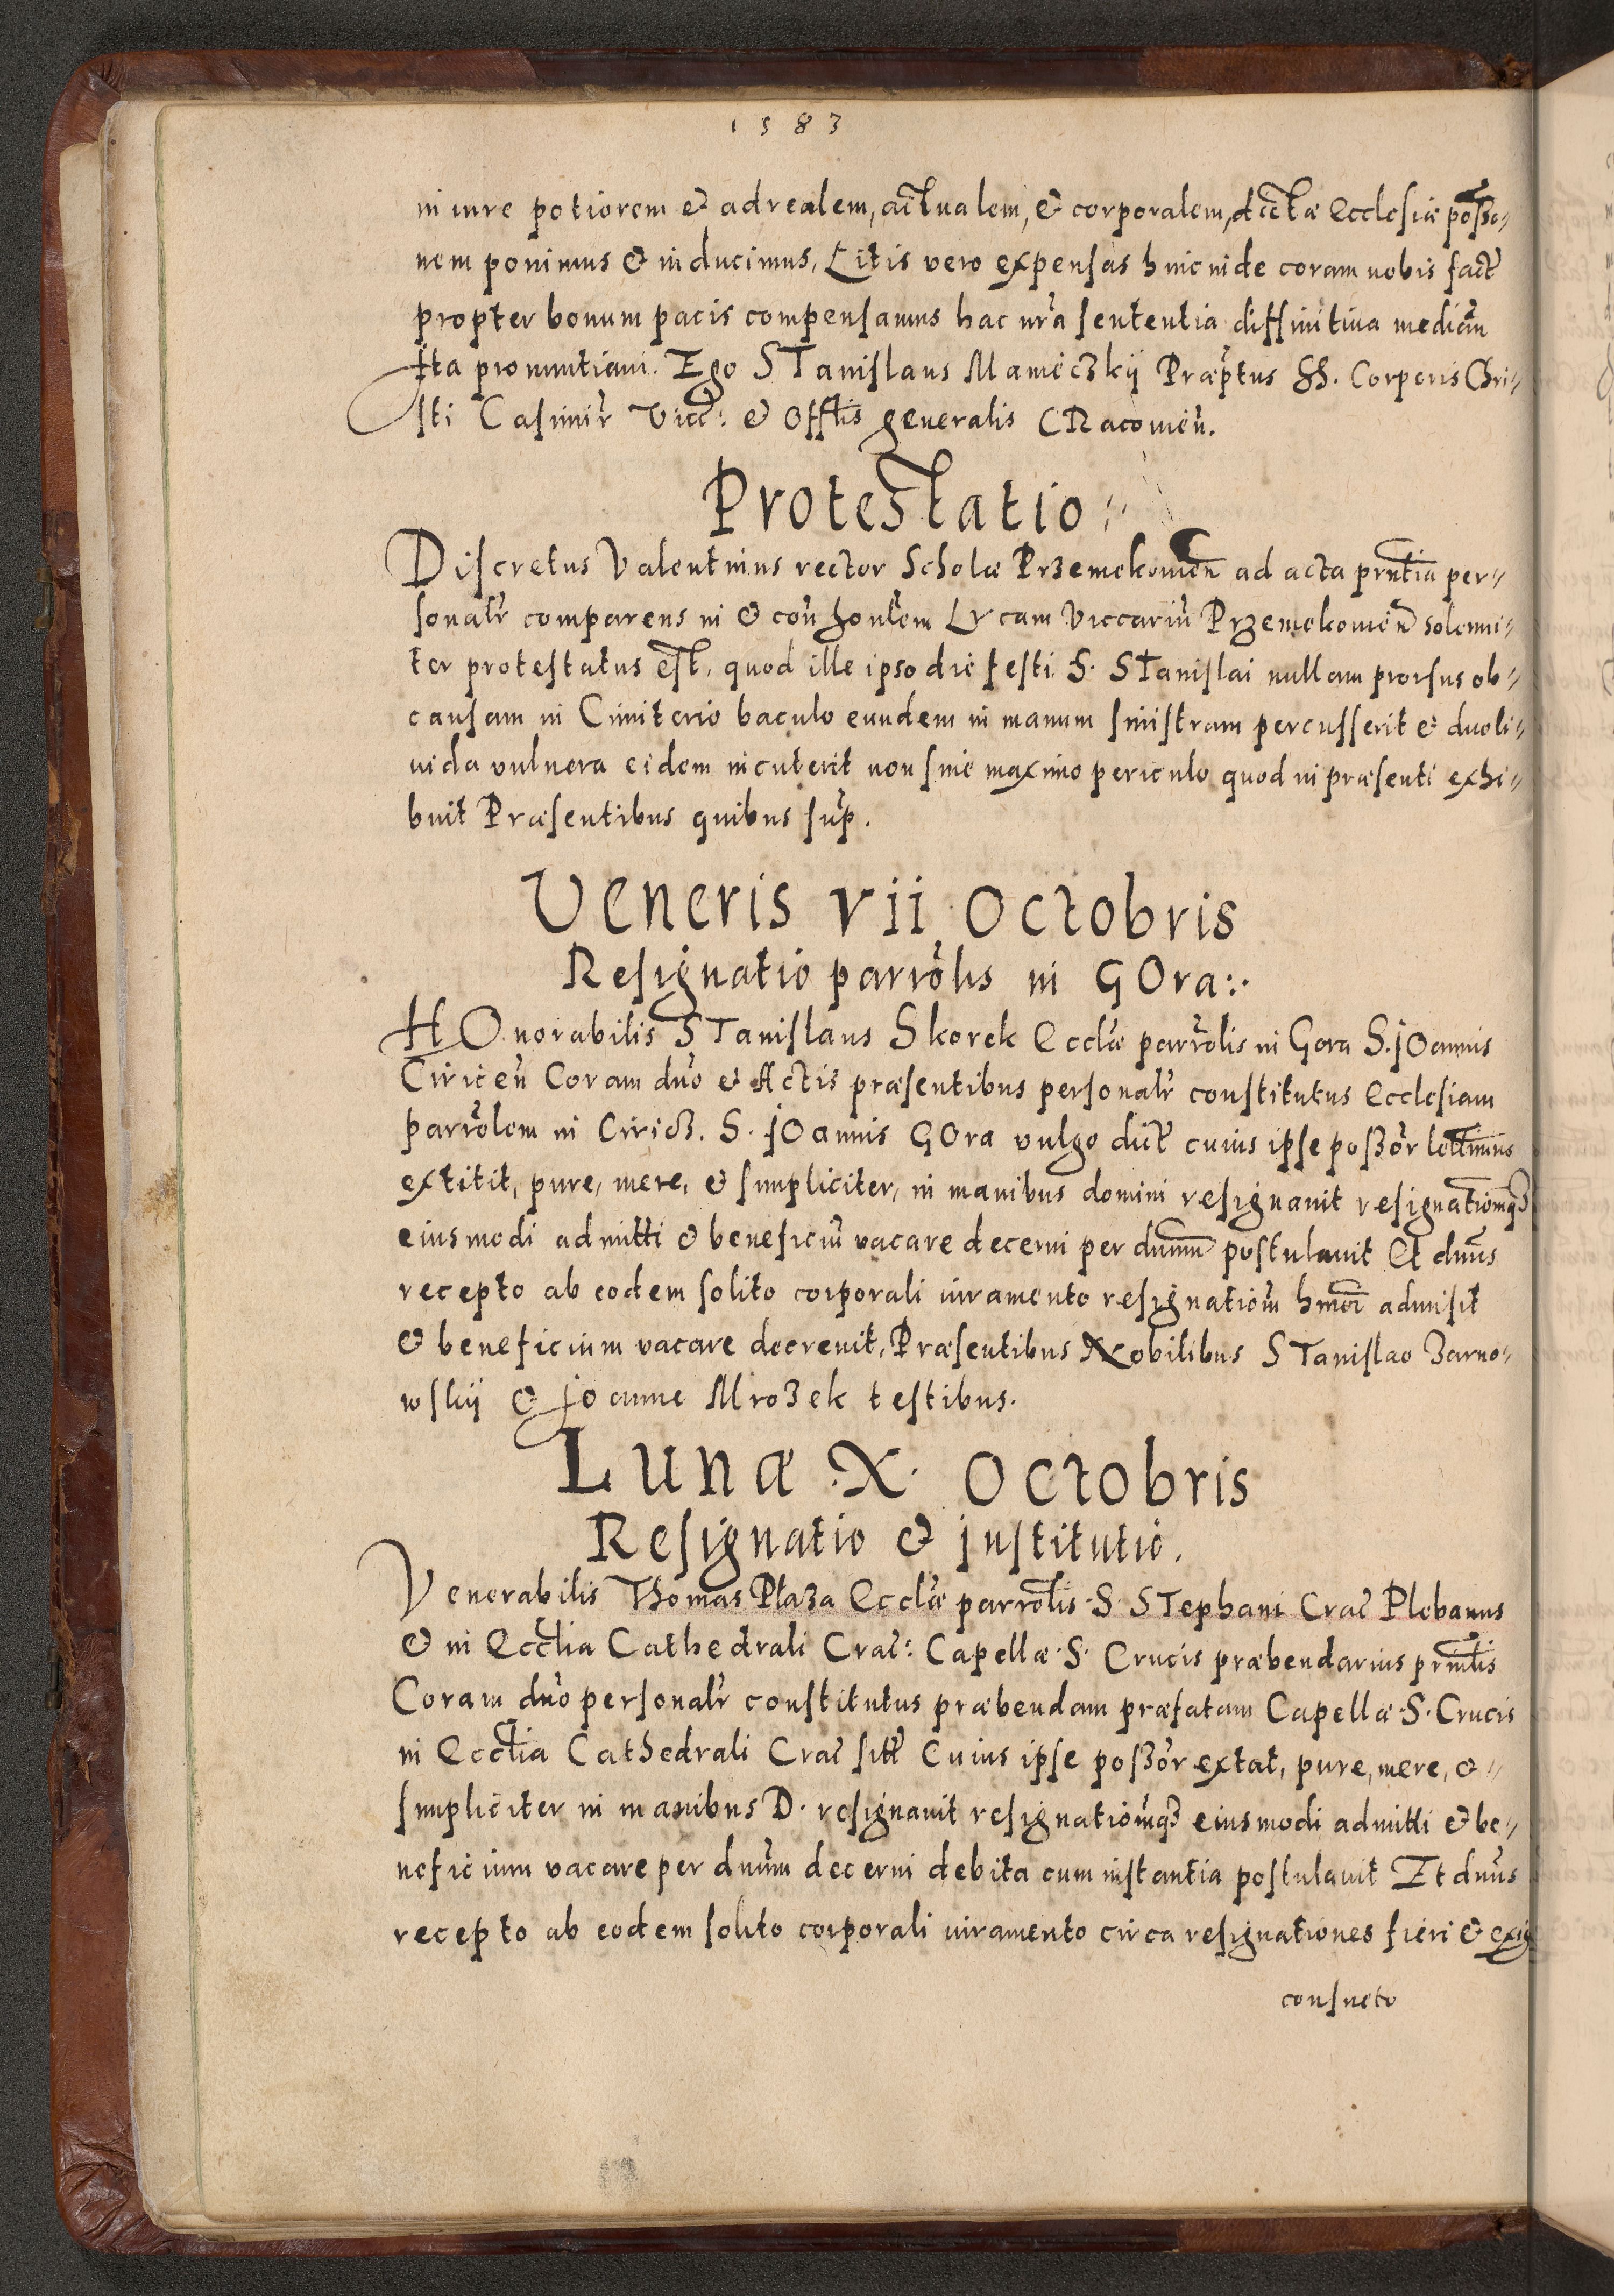 1583
in iure potiorem & ad realem, actualem, & corporalem, dictæ Ecclesiæ posses-
nem ponimus & inducimus, Litis vero expensas hincinde coram nobis fact
propter bonum pacis compensamus hac nra sententia diffinitiua median
Ita pronuntiaui. Ego STanislaus Mameczkij Præptus SS. Corporis Chri-
sti Casimir Vicc: & Offlis generalis CRacouien.
ProtesTatio
Discretus Valentinus rector Scholæ Przemekouien ad acta prntia per-
sonalr comparens in & con honlem Lucam Viccariu Przemekouien solenni-
ter protestatus est, quod ille ipso die festi S. STanislai nullam prorsus ob
causam in Cimiterio baculo eundem in manum sinistram percusserit & duo li-
uida vulnera eidem incuterit non sine maximo periculo quod in præsenti exhi-
buit Præsentibus quibus sup.
Veneris vii Octobris
Resignatio parrolis in GOra:.
HOnorabilis STanislaus Skorek Ecclæ parrolis in Gora S. jOannis
Ciricen Coram dno & Actis præsentibus personalr constitutus Ecclesiam
parrolem in Cirici. S. jOannis GOra vulgo dict cuius ipse poßor lettimus
extitit, pure, mere, & simpliciter, in manibus domini resignauit resignationq3
eiusmodi admitti & beneficiu vacare decerni per dnum postulauit Et dnus
recepto ab eodem solito corporali iuramento resignatiom hmoi admisit
& beneficium vacare decreuit, Præsentibus Nobilibus STanislao Zarno-
wskij & joanne Mrozek testibus.
Lunæ .X. Octobris
Resignatio & institutio.
Venerabilis Thomas Plaza Ecclæ parrolis S. STephani Crac Plebanus
& in Ecclia Cathedrali Crac: Capellæ S. Crucis præbendarius prinlis
Coram dno personalr constitutus præbendam præfatam Capellæ S. Crucis
in Ecclia Cathedrali Crac sitt Cuius ipse poßor extat, pure, mere, &
simpliciter in manibus D. resignauit resignatiomq3 eiusmodi admitti & be-
neficium vacare per dnum decerni debita cum instantia postulauit Et dnus
recepto ab eodem solito corporali iuramento circa resignationes fieri & exig
consueto